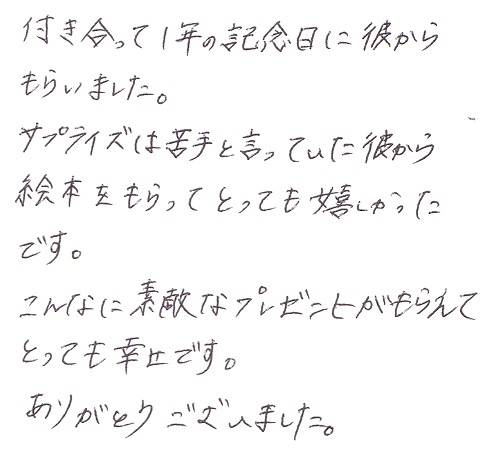 付き合って1年の記念日に彼から
もらいました。
サプライズは苦手と言っていた彼から
絵本をもらってとっても嬉しかった
です。
こんなに素敵なプレゼントがもらえて
とっても幸せです。
ありがとうございました。